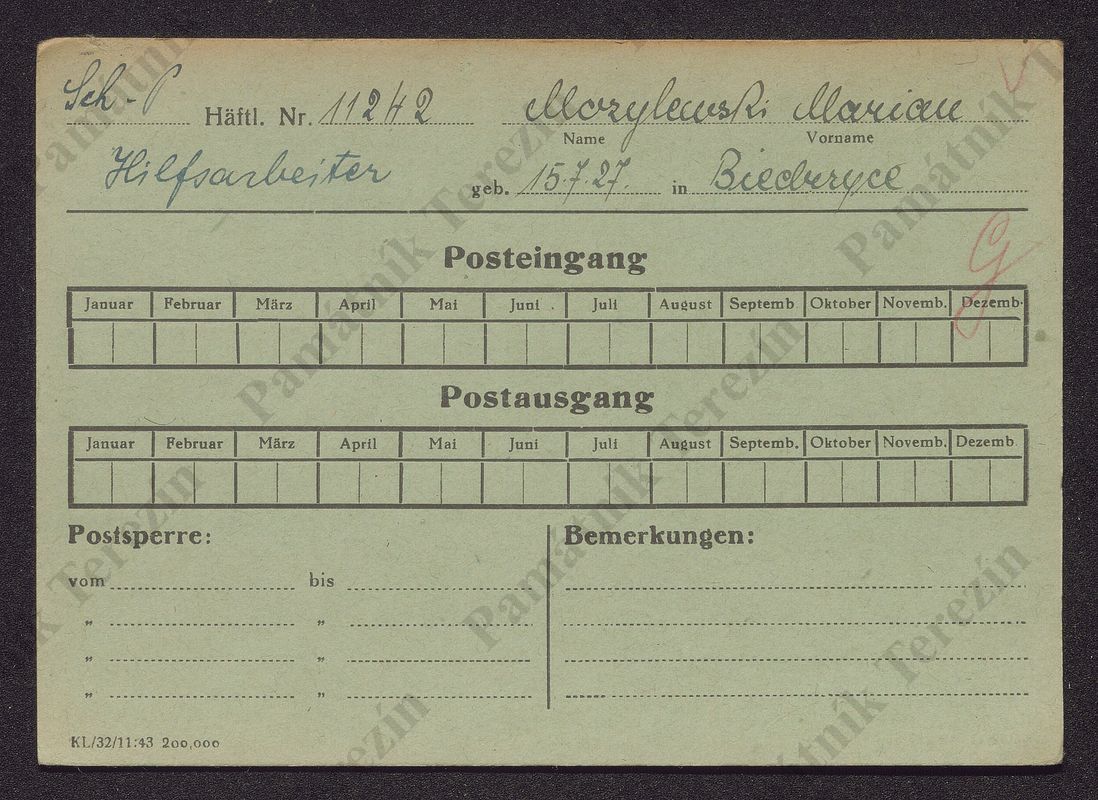 Sch-P Häftl. Nr. 11242 Mozylewski Marian
Name Vorname
Hilfsarbeiter geb. 15.7.27. in Biedrzyce
Posteingang
Januar Februar März April Mai Juni Juli August Septemb Oktober Novemb. Dezemb.
G
Postausgang
Januar Februar März April Mai Juni Juli August Septemb. Oktober Novemb. Dezemb
Postsperre: Bemerkungen:
vom bis
„ „
„ „
„ „
KL/32/11:43 200,000
Památník Terezín